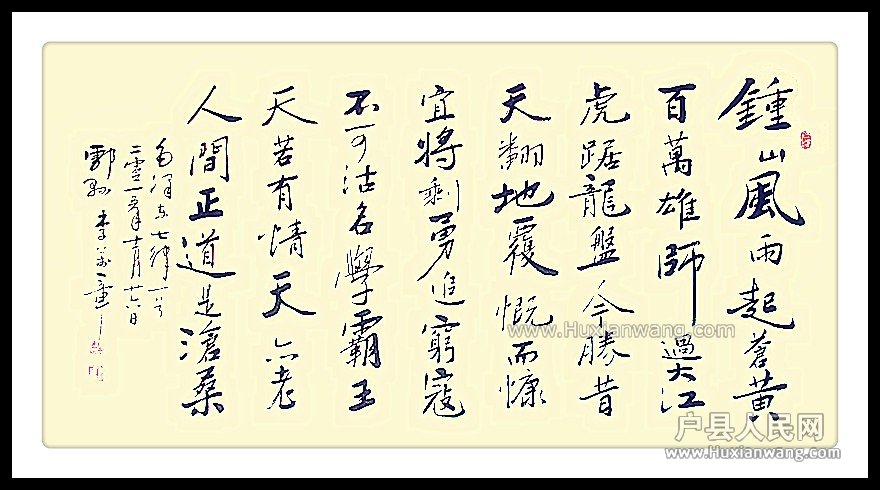 鍾山風雨起蒼黃
百萬雄師過大江
虎踞龍盤今勝昔
天翻地覆慨而慷
宜將剩勇追窮寇
不可沽名學霸王
天若有情天亦老
人間正道是滄桑
毛澤東七律一首
二零一五年十月廿六日
鄠縣
www.Huxianwang.com
户县人民网
www.Huxianwang.com